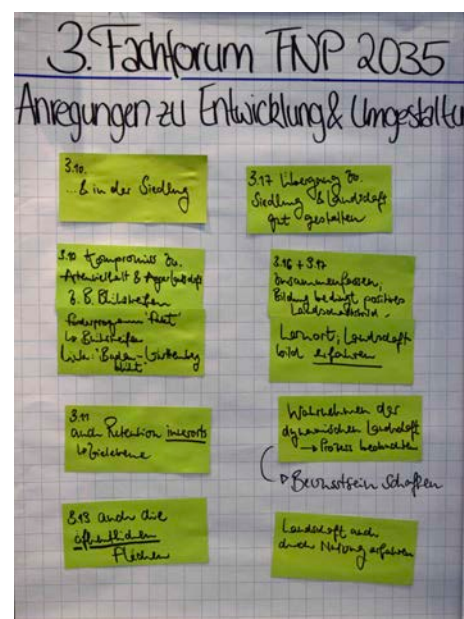 3. Fachforum FNP 2035
Anregungen zu Entwicklung & Umgestaltu
3.10.
...& in der Siedlung
3.10 Kompromiss zw.
Artenvielfalt & Agrarlandschaft
z.B. Blühstreifen
Förderprogramm
↳ Blühstreifen
Link: "Baden-Württemberg
blüht"
3.11
auch Retention innerorts
↳ Zielebene
3.13 auch die
öffentlichen
Flächen
3.17 Übergang zw.
Siedlung & Landschaft
gut gestalten
3.16 + 3.17
zusammenfassen,
Bildung bedingt positives
Landschaftsbild.
Lernort; Landschafts
bild erfahren
Wahrnehmen der
dynamischen Landschaft
→ Prozess beobachten
Bewusstsein schaffen
Landschaft auch
durch Nutzung erfahren